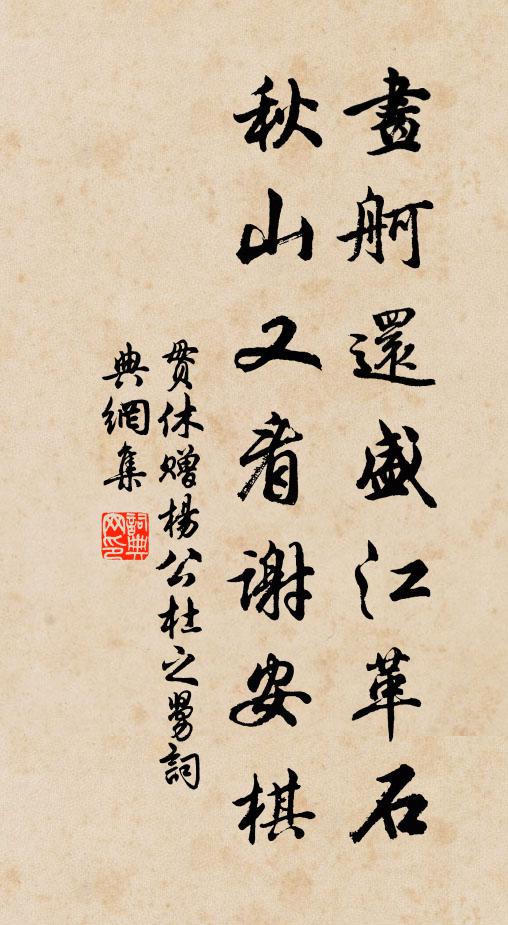 畫舸還盛江革石
秋山又看謝安棋
貫休贈楊公杜之舅詞
典網集
詞典
网印